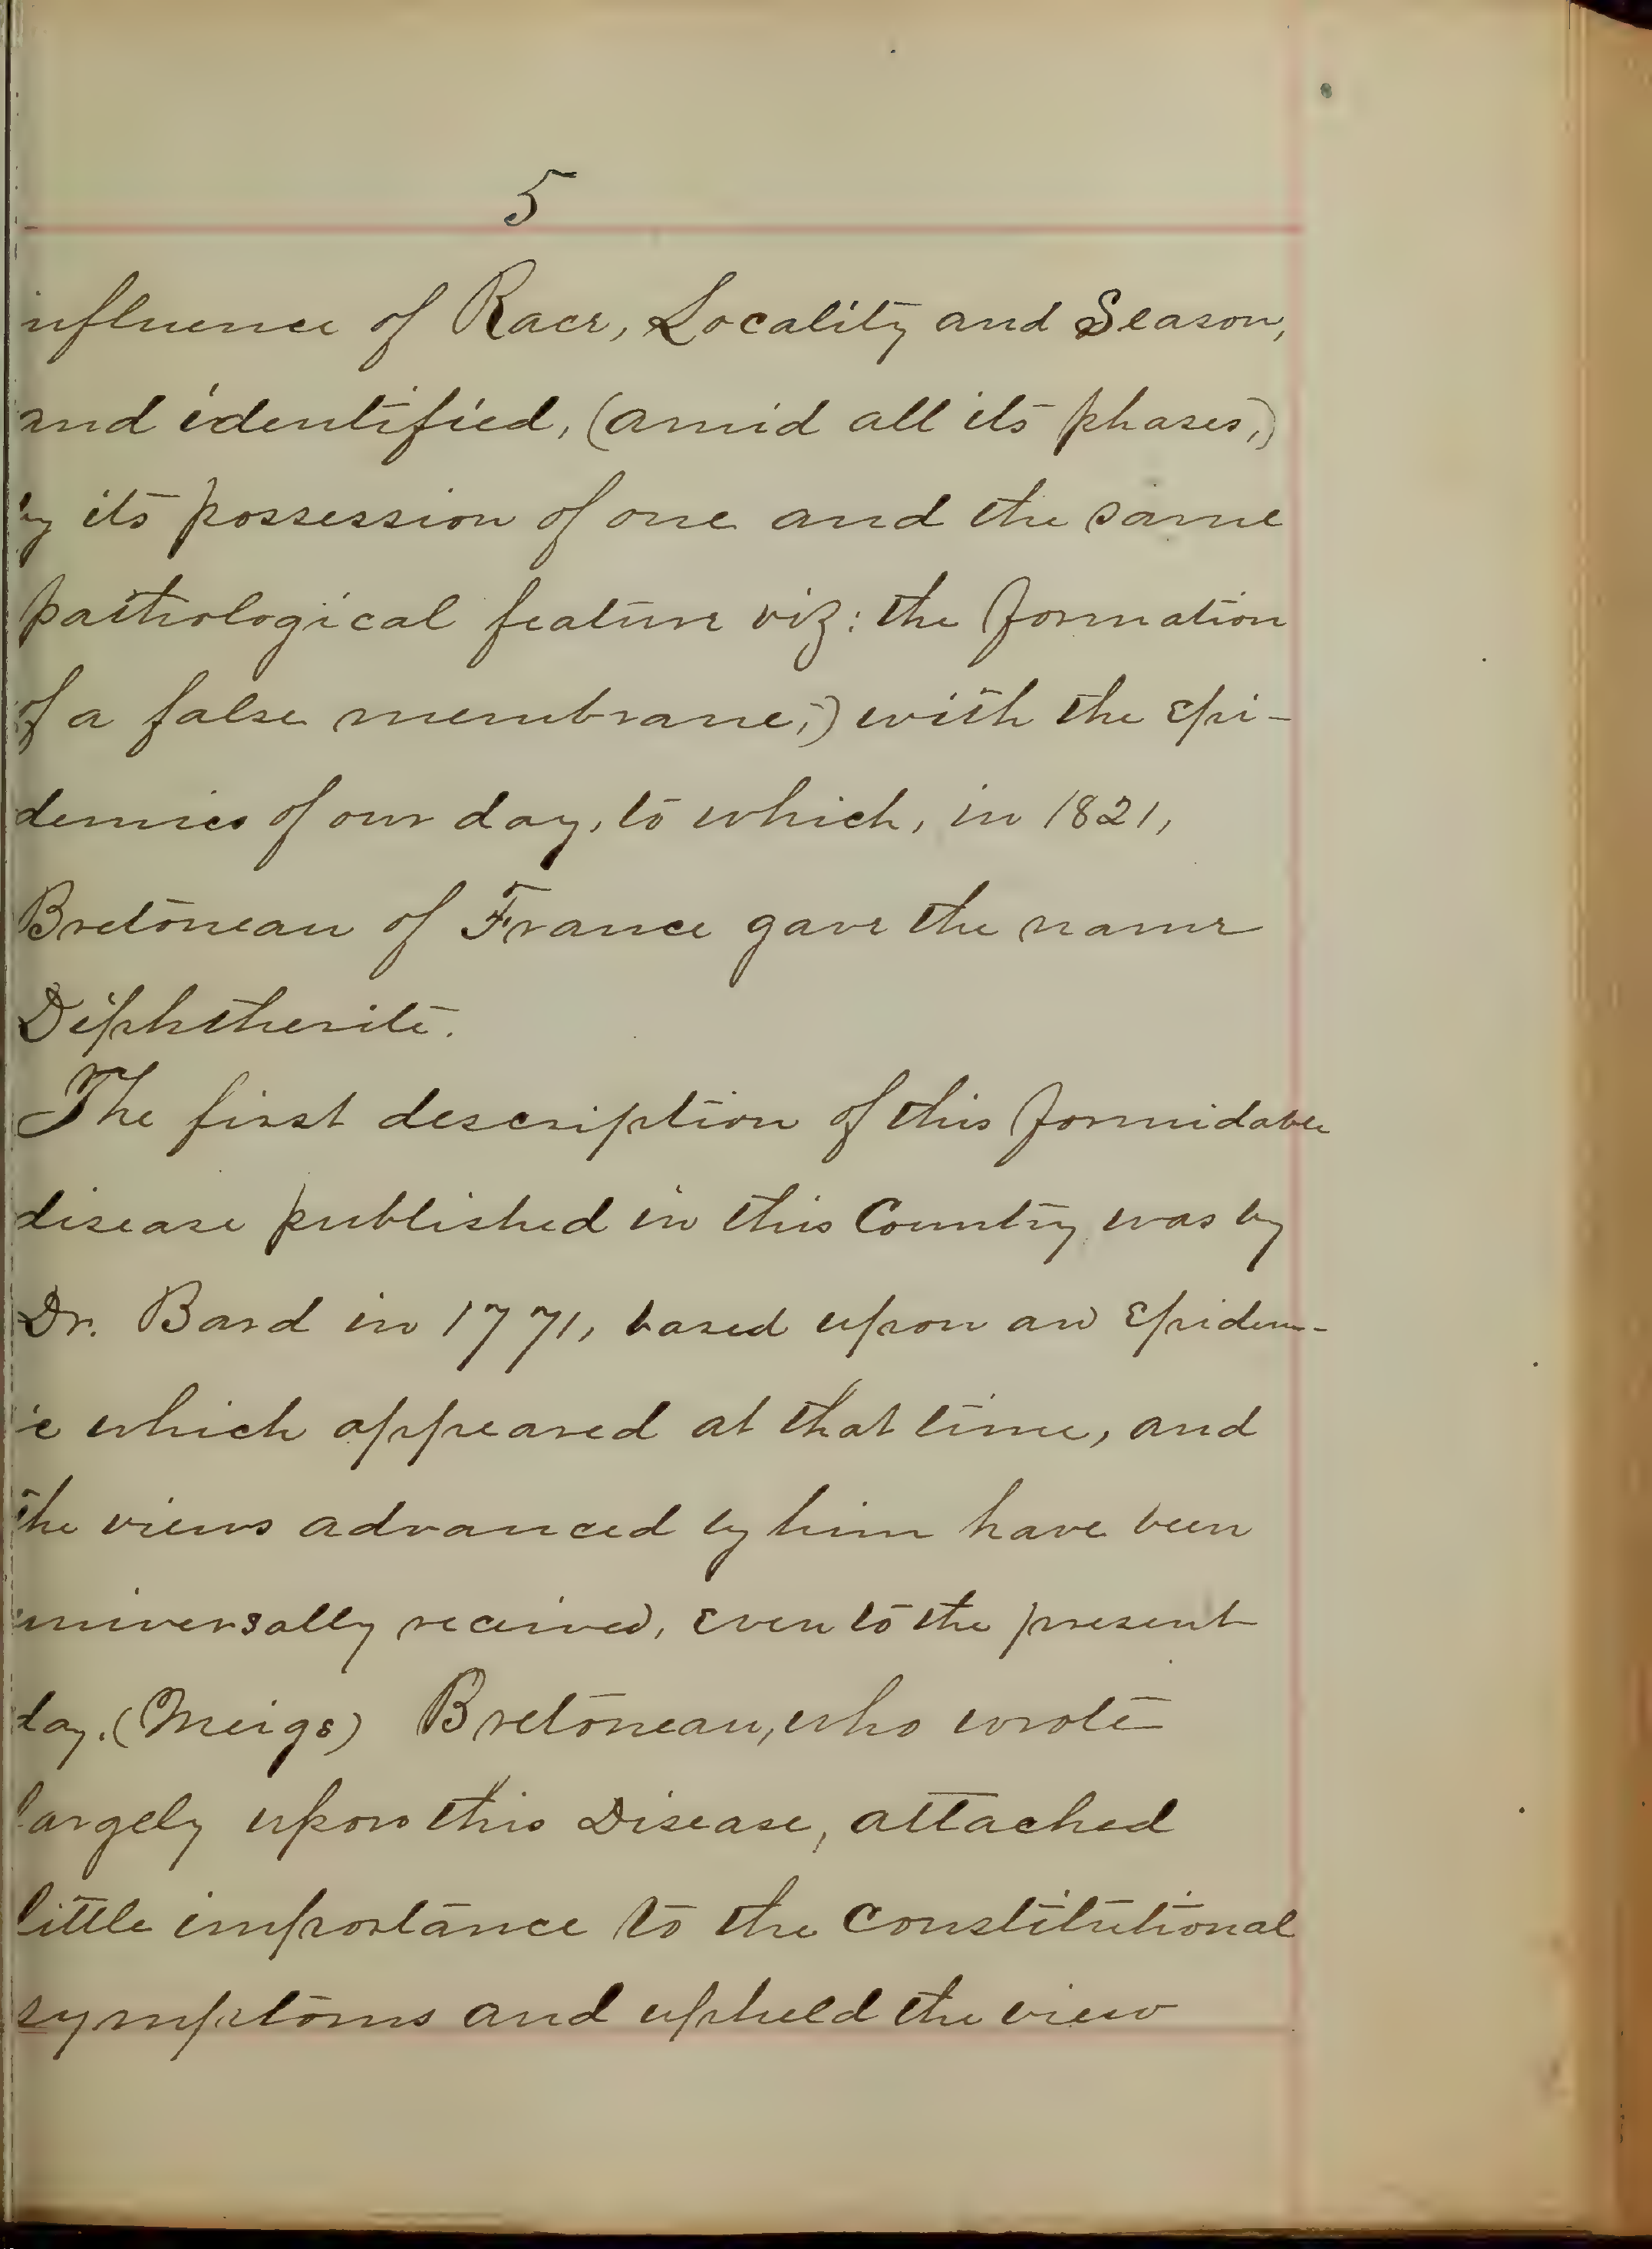 5
influence of Race, Locality and Season,
and identified, (amid all its phases,)
by its possession of one and the same
pathological feature viz: the formation
of a false membrane;) with the Epi-
demics of our day, to which, in 1821,
Bretoneau of France gave the name
Diphtherite.
The first description of this formidable
disease published in this Country was by
Dr. Bard in 1771, based upon an Epidem-
ic which appeared at that time, and
the views advanced by him have been
universally received, even to the present
day. (Meigs) Bretoneau, who wrote
largely upon this Disease, attached
little importance to the Constitutional
symptoms and upheld the view